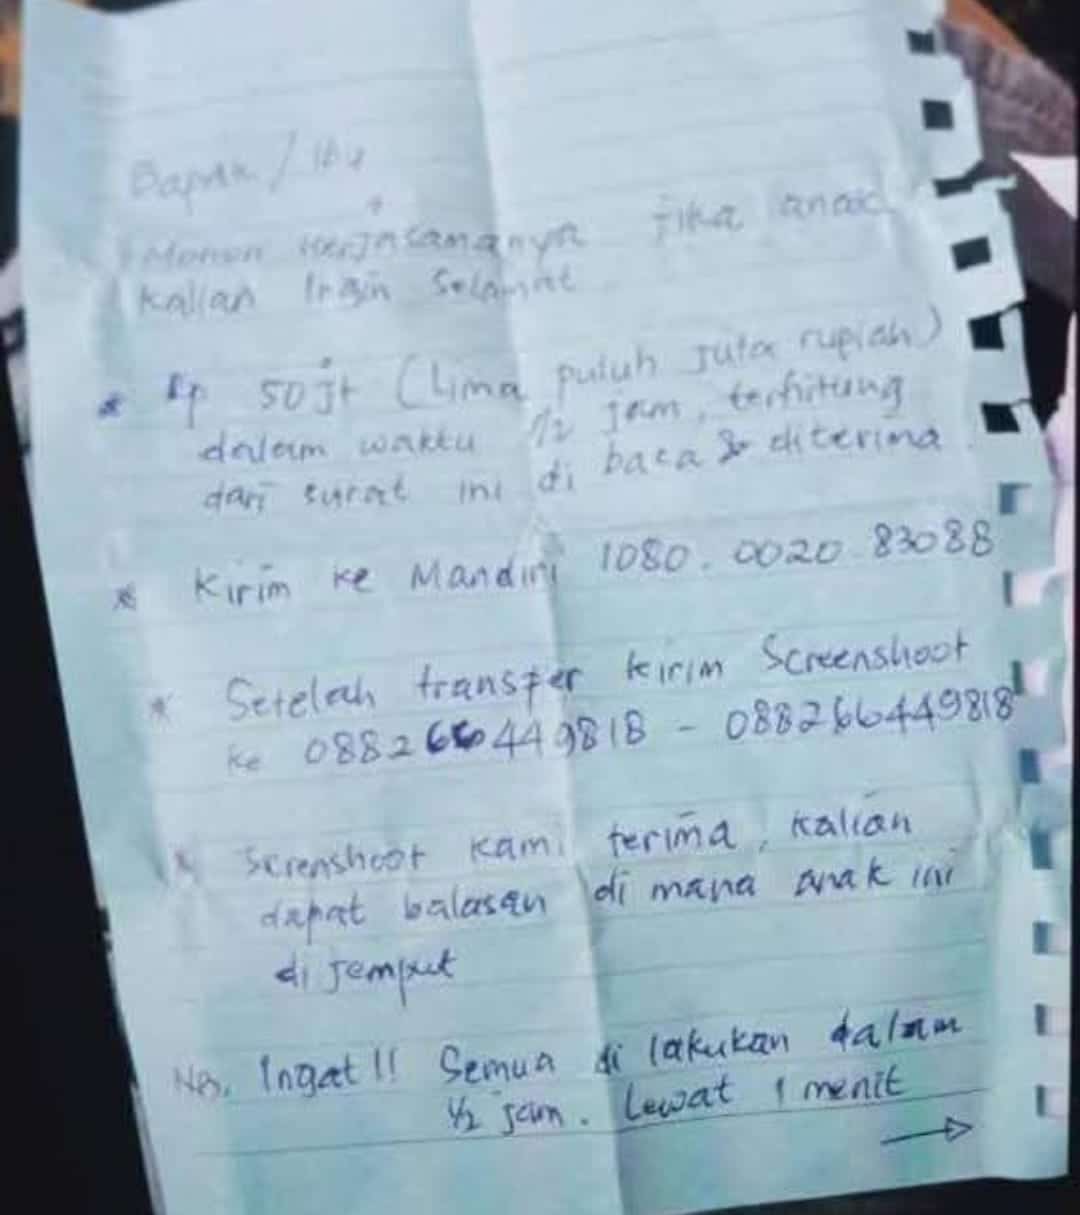 Bapak / Ibu
Mohon Kerjasamanya jika anak
Kalian Ingin Selamat
* Rp 50 jt (Lima puluh Juta rupiah)
dalam waktu 1/2 jam, terhitung
dari surat ini di baca & diterima
* Kirim ke Mandiri 1080.0020.83088
* Setelah transfer kirim Screenshoot
ke 088266449818 - 088266449818
* Screnshoot kami terima, kalian
dapat balasan di mana anak ini
di Jemput
NB. Ingat!! Semua di lakukan dalam
1/2 jam. Lewat 1 menit
→